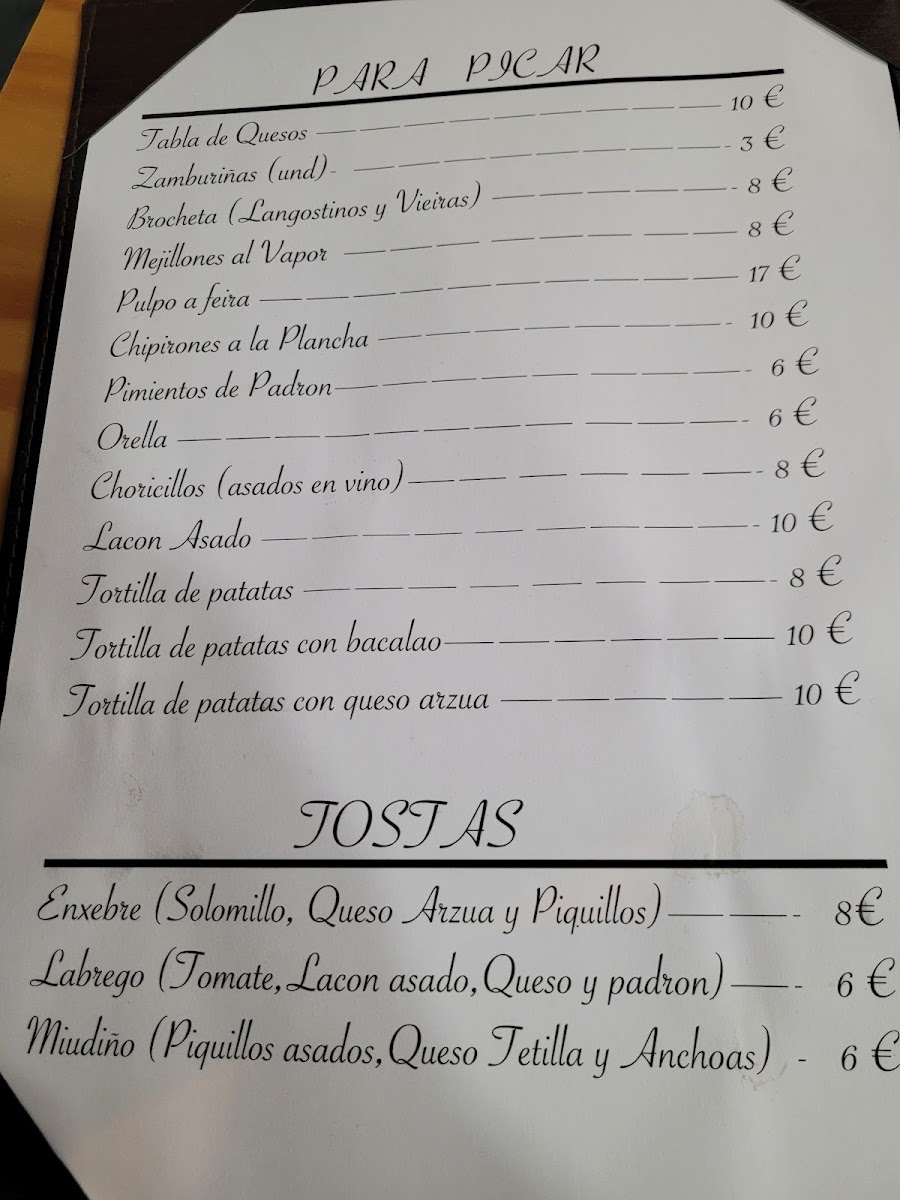 PARA PICAR
Tabla de Quesos — — — — — — — — 10 €
Zamburiñas (und)- — — — — — — — -3 €
Brocheta (Langostinos y Vieiras) — — — — — -8 €
Mejillones al Vapor — — — — — — — 8 €
Pulpo a feira — — — — — — — — — 17 €
Chipirones a la Plancha — — — — — — - 10 €
Pimientos de Padron— — — — — — — - 6 €
Orella — — — — — — — — — — - 6 €
Choricillos (asados en vino)— — — — — -8 €
Lacon Asado — — — — — — — — -10 €
Tortilla de patatas — — — — — — — - 8 €
Tortilla de patatas con bacalao— — — — — 10 €
Tortilla de patatas con queso arzua — — — — 10 €
TOSTAS
Enxebre (Solomillo, Queso Arzua y Piquillos)— — - 8€
Labrego (Tomate, Lacon asado, Queso y padron)— - 6 €
Miudiño (Piquillos asados, Queso Tetilla y Anchoas) - 6 €